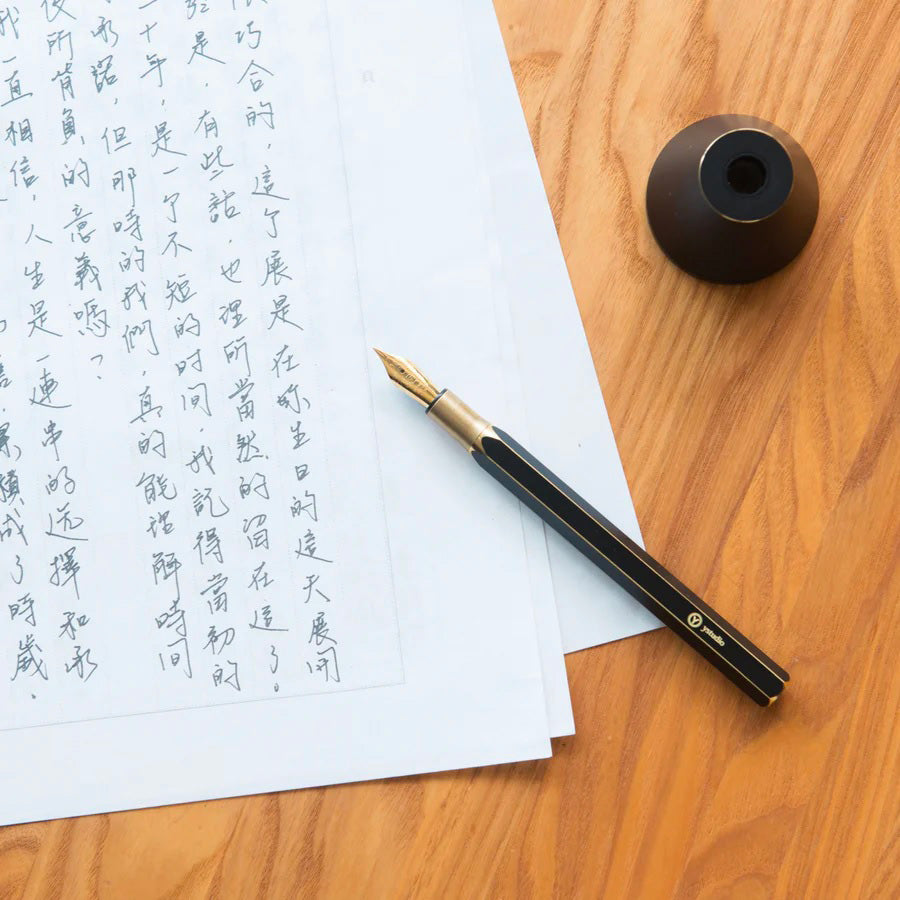 巧合的，這个展是在妳生日的這天展開
是，有些話，也理所當然的留在這了。
十年，是一个不短的时间，我記得當初的
承諾，但那時的我們，真的能理解時间
所背負的意義嗎？
我一直相信，人生是一連串的选擇和承
累積成了時歲，
Y ystudio